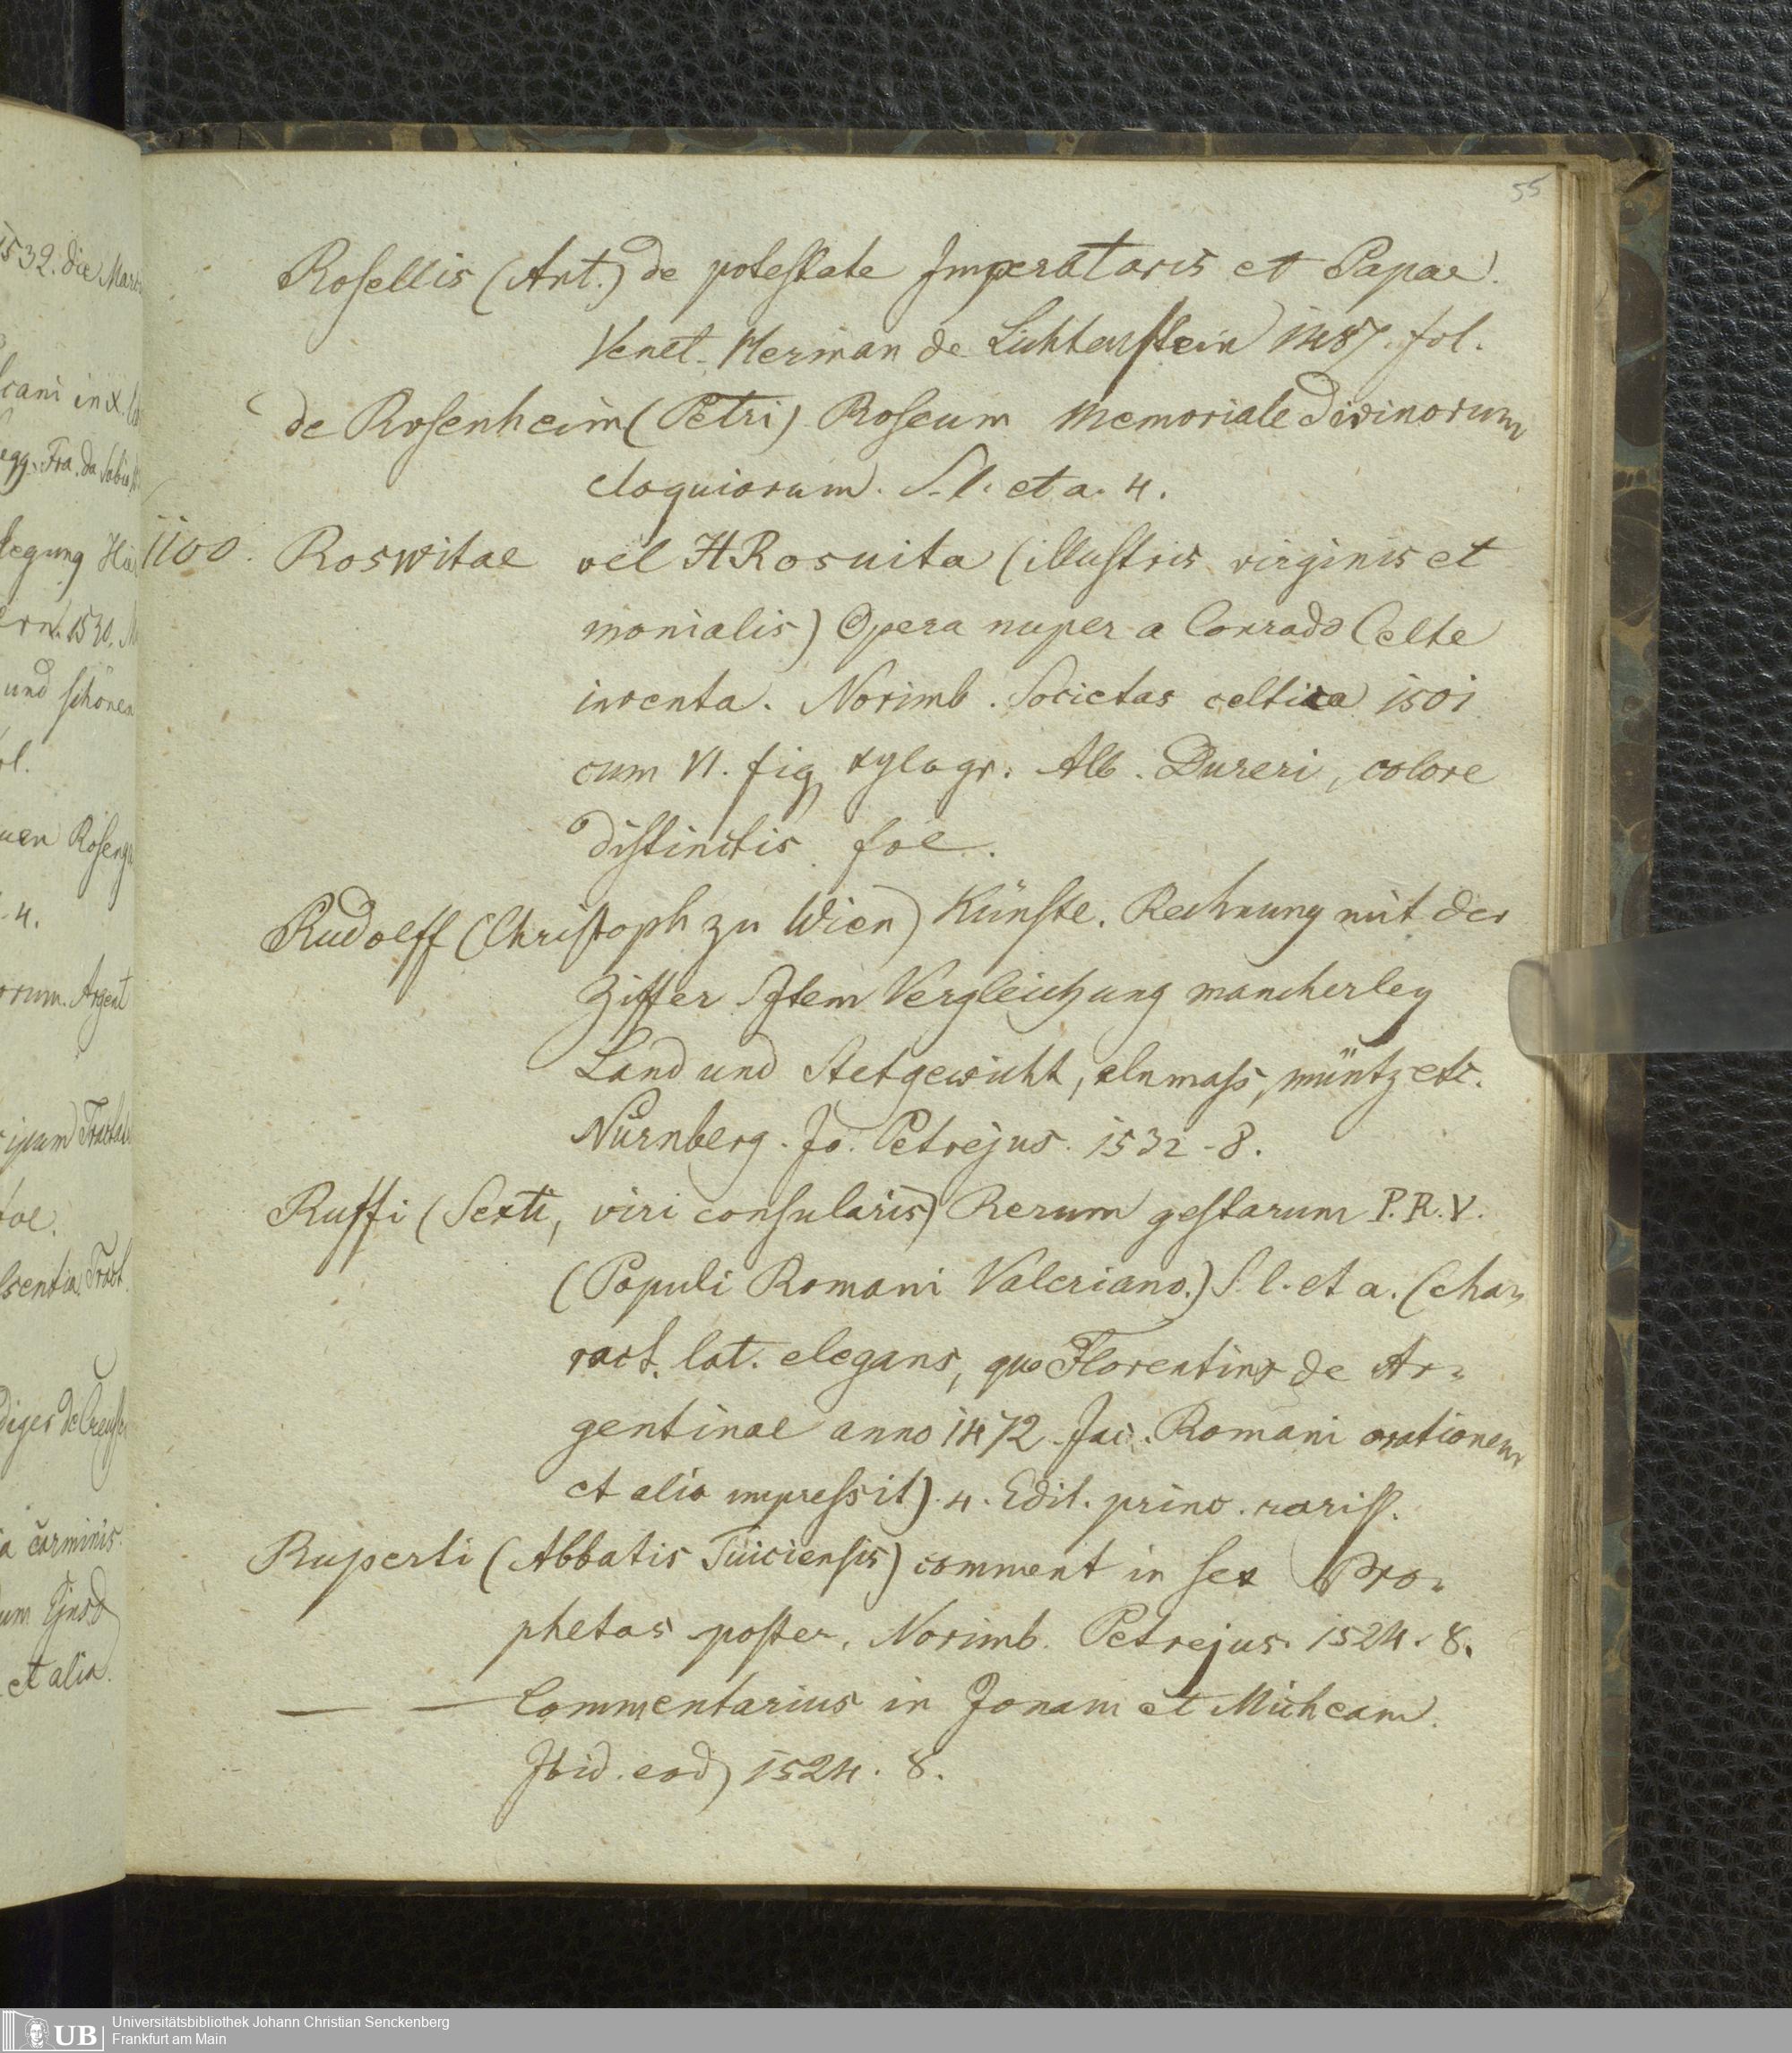 55
Rosellis (Ant.) de potestate Imperatoris et Papae.
Venet. Herman de Lichtenstein 1487. fol.
de Rosenheim (Petri) Roseum memoriale divinorum
eloquiorum. S. l. et a. 4.
1100. Roswitae vel HRosuita (illustris virginis et
monialis) Opera nuper a Conrado Celte
inventa. Norimb. Societas celtica 1501
cum VI. fig xylogr. Alb. Dureri, colore
distinctis fol.
Rudolff (Christoph zu Wien) Künste. Rechnung mit der
Ziffer Item Vergleichung mancherley
Land und Stetgewicht, elnmass, müntz etc.
Nürnberg. Jo. Petrejus. 1532 - 8.
Ruffi (Sexti, viri consularis) Rerum gestarum P. R. V.
(Populi Romani Valeriano.) S. l. et a. (cha=
ract. lat. elegans, quo Florentino de Ar=
gentinae anno 1472 Jac. Romani orationem
et alia impressit). 4. Edit. princ. rariss.
Ruperti (Abbatis Tuiciensis) comment in sex Pro=
phetas poster. Norimb. Petrejus. 1524. 8.
— — Commentarius in Jonam et Micheam.
Ibid. eod 1524. 8.
1532. die
und schönen
4.
et alia.
UB Universitätsbibliothek Johann Christian Senckenberg
Frankfurt am Main